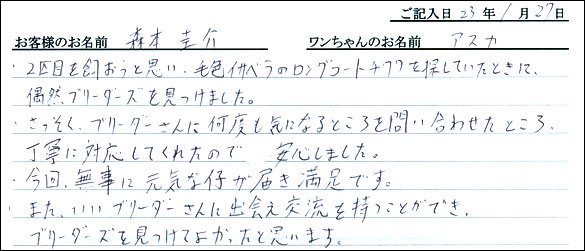 ご記入日 23年1月27日
お客様のお名前 森本 圭介 ワンちゃんのお名前 アスカ
・2匹目を飼おうと思い、毛色イサベラのロングコートチワワを探していたときに、
偶然ブリーダーズを見つけました。
・さっそく、ブリーダーさんに何度も気になるところを問い合わせたところ、
丁寧に対応してくれたので 安心しました。
・今回、無事に元気な仔が届き満足です。
・また、いいブリーダーさんに出会え交流を持つことができ、
ブリーダーズを見つけてよかったと思います。